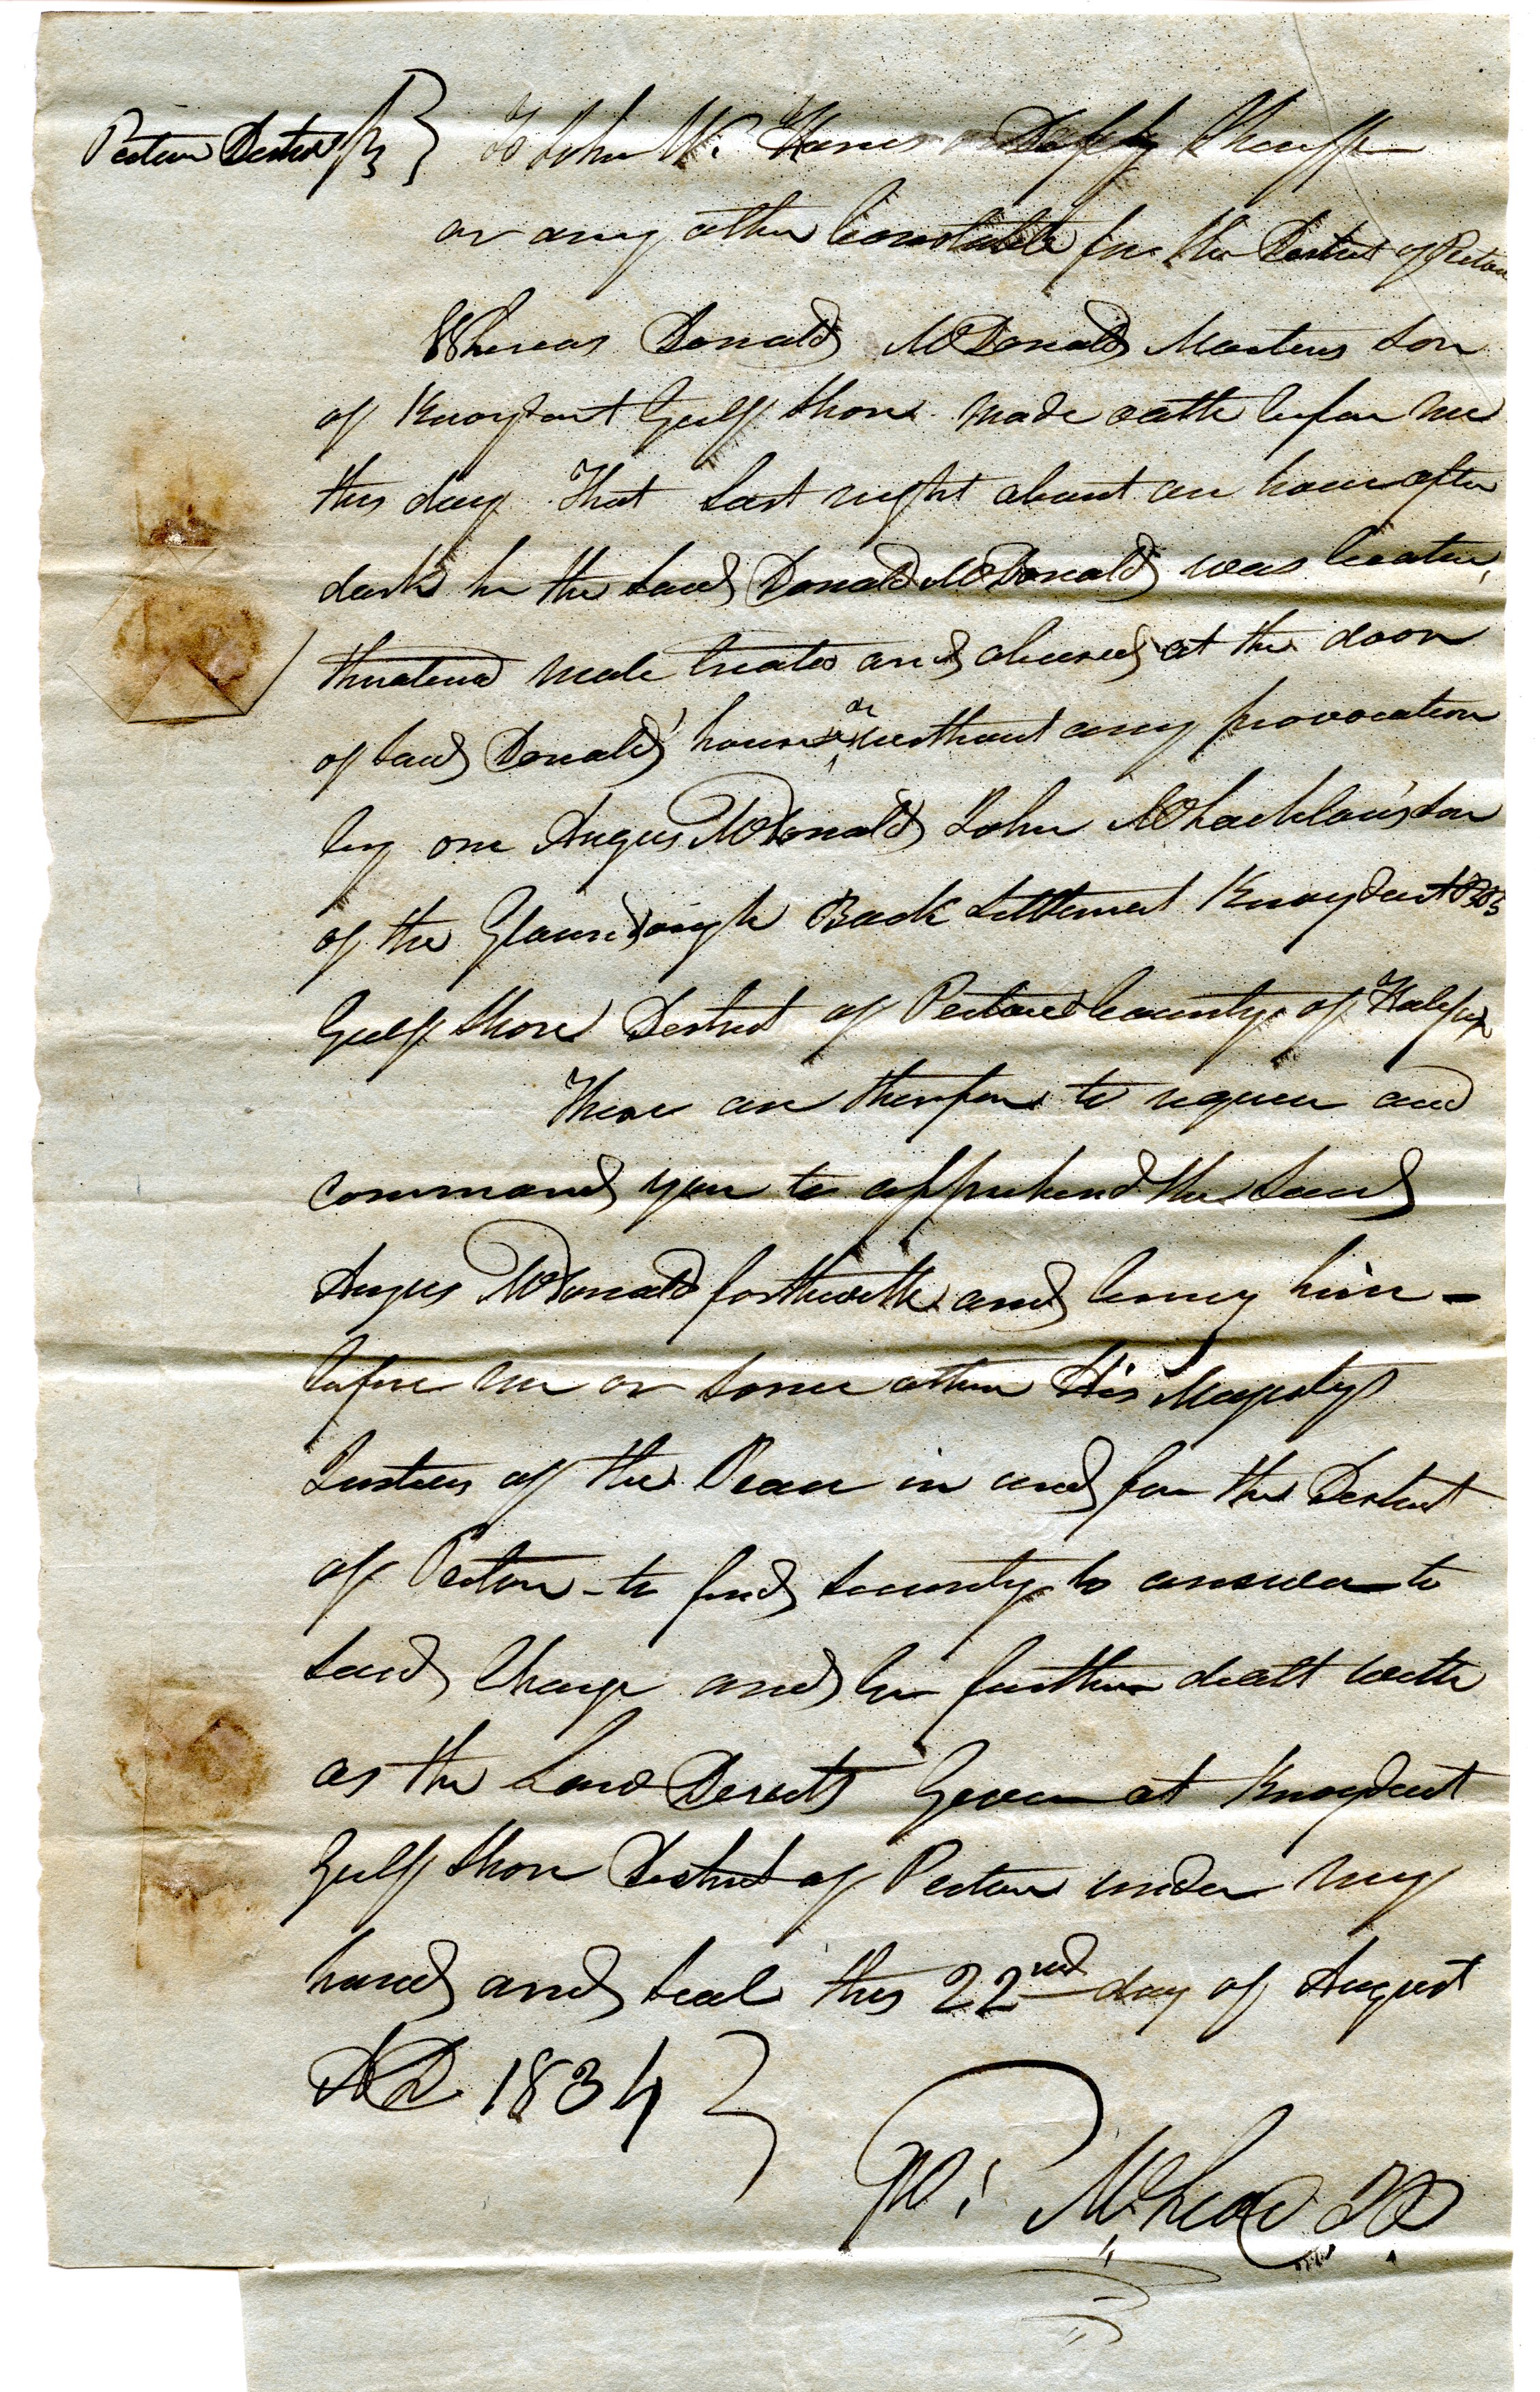 Pictou District } To John W. Harris Deputy Sheriff
or any other Constable for the District of Pictou
Whereas Donald McDonald Martins son
of Knoydart Gulf Shore made oath before me
this day That Last night about an hour after
dark he the said Donald McDonald was beaten,
threatened male treated and abused at the door
of said Donald's house or without any provocation
by one Angus McDonald John McLachlan's son
of the Back Settlement Knoydart
Gulf Shore District of Pictou County of Halifax
These are therefore to require and
command you to apprehend the said
Angus McDonald forthwith and bring him
before me or some other His Majestys
Justices of the Peace in and for the District
of Pictou to find security to answer to
said Charge and be further dealt with
as the Law Directs Given at Knoydart
Gulf Shore District of Pictou under my
hand and seal this 22nd day of August
AD 1834 }
McLeod JP